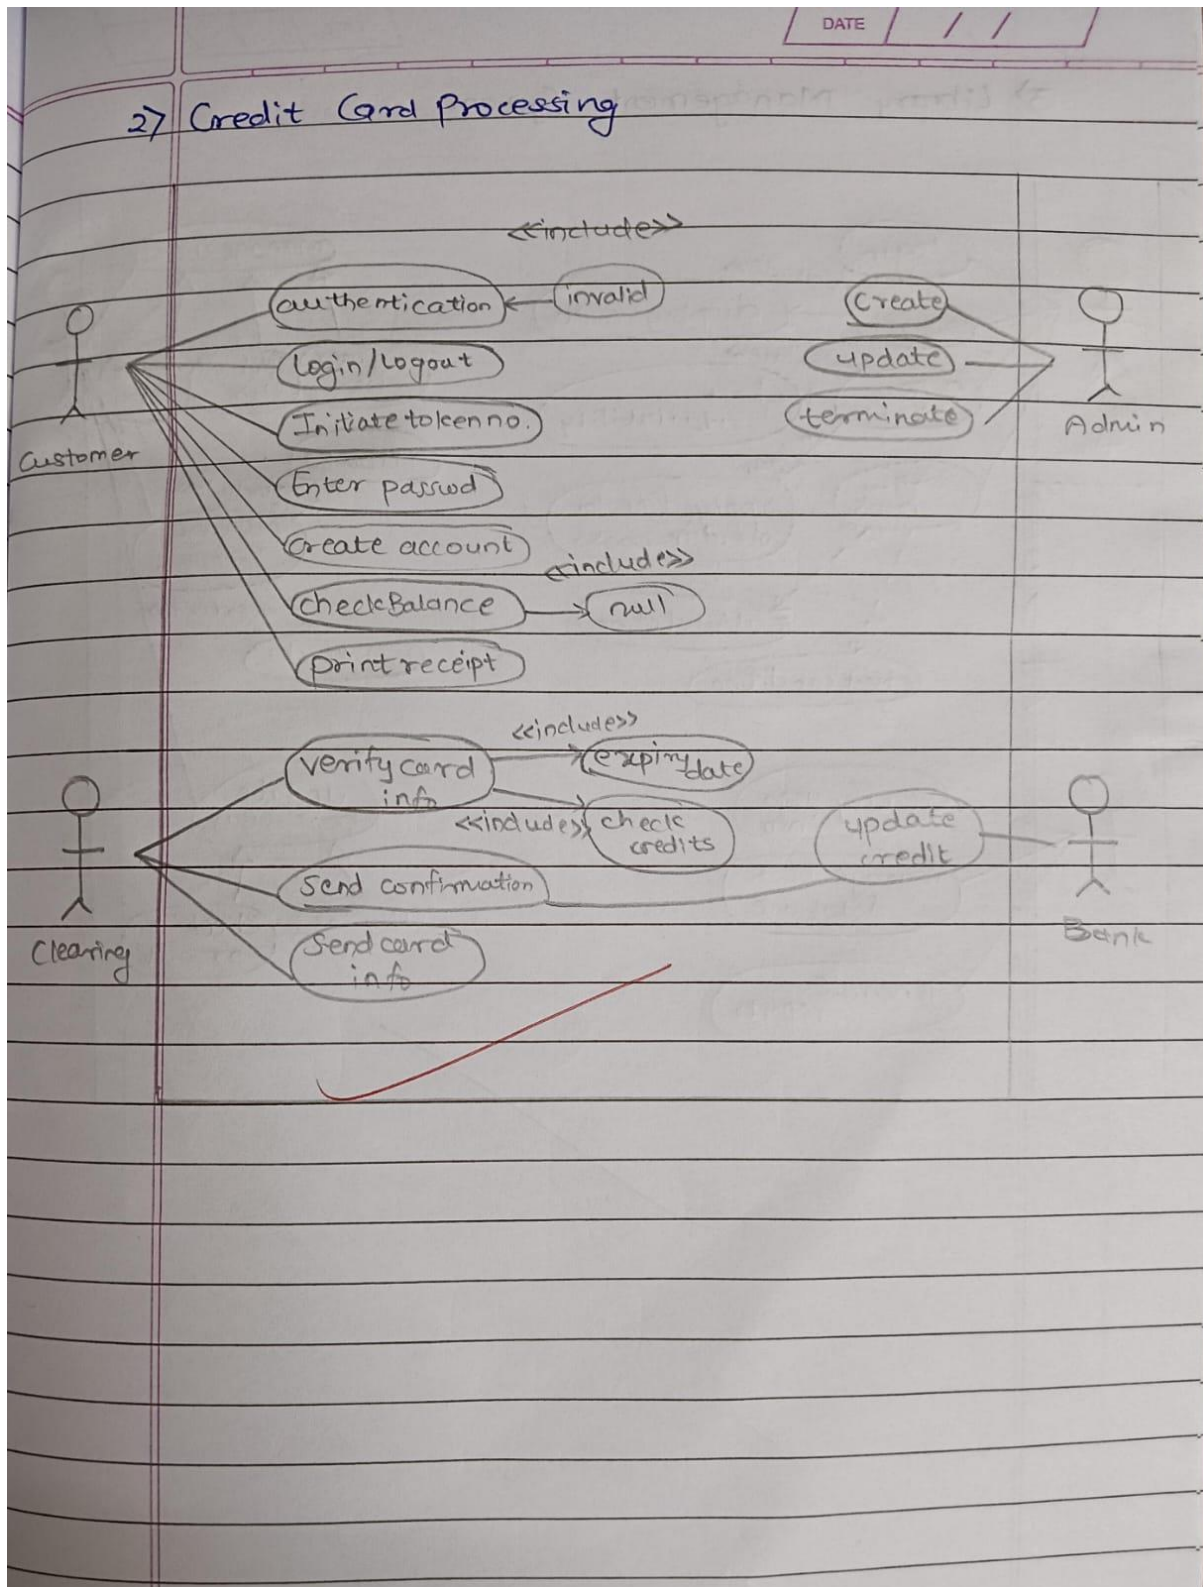 DATE / /
2) Credit Card Processing
<<include>>
authentication
invalid
Create
login/logout
update
Initiate token no.
terminate
Admin
Customer
Enter passwd
Create account
<<include>>
checkBalance
null
print receipt
<<include>>
verify card
info
expiry date
<<include>>
check
credits
update
credit
Send confirmation
Clearing
Send card
info
Bank